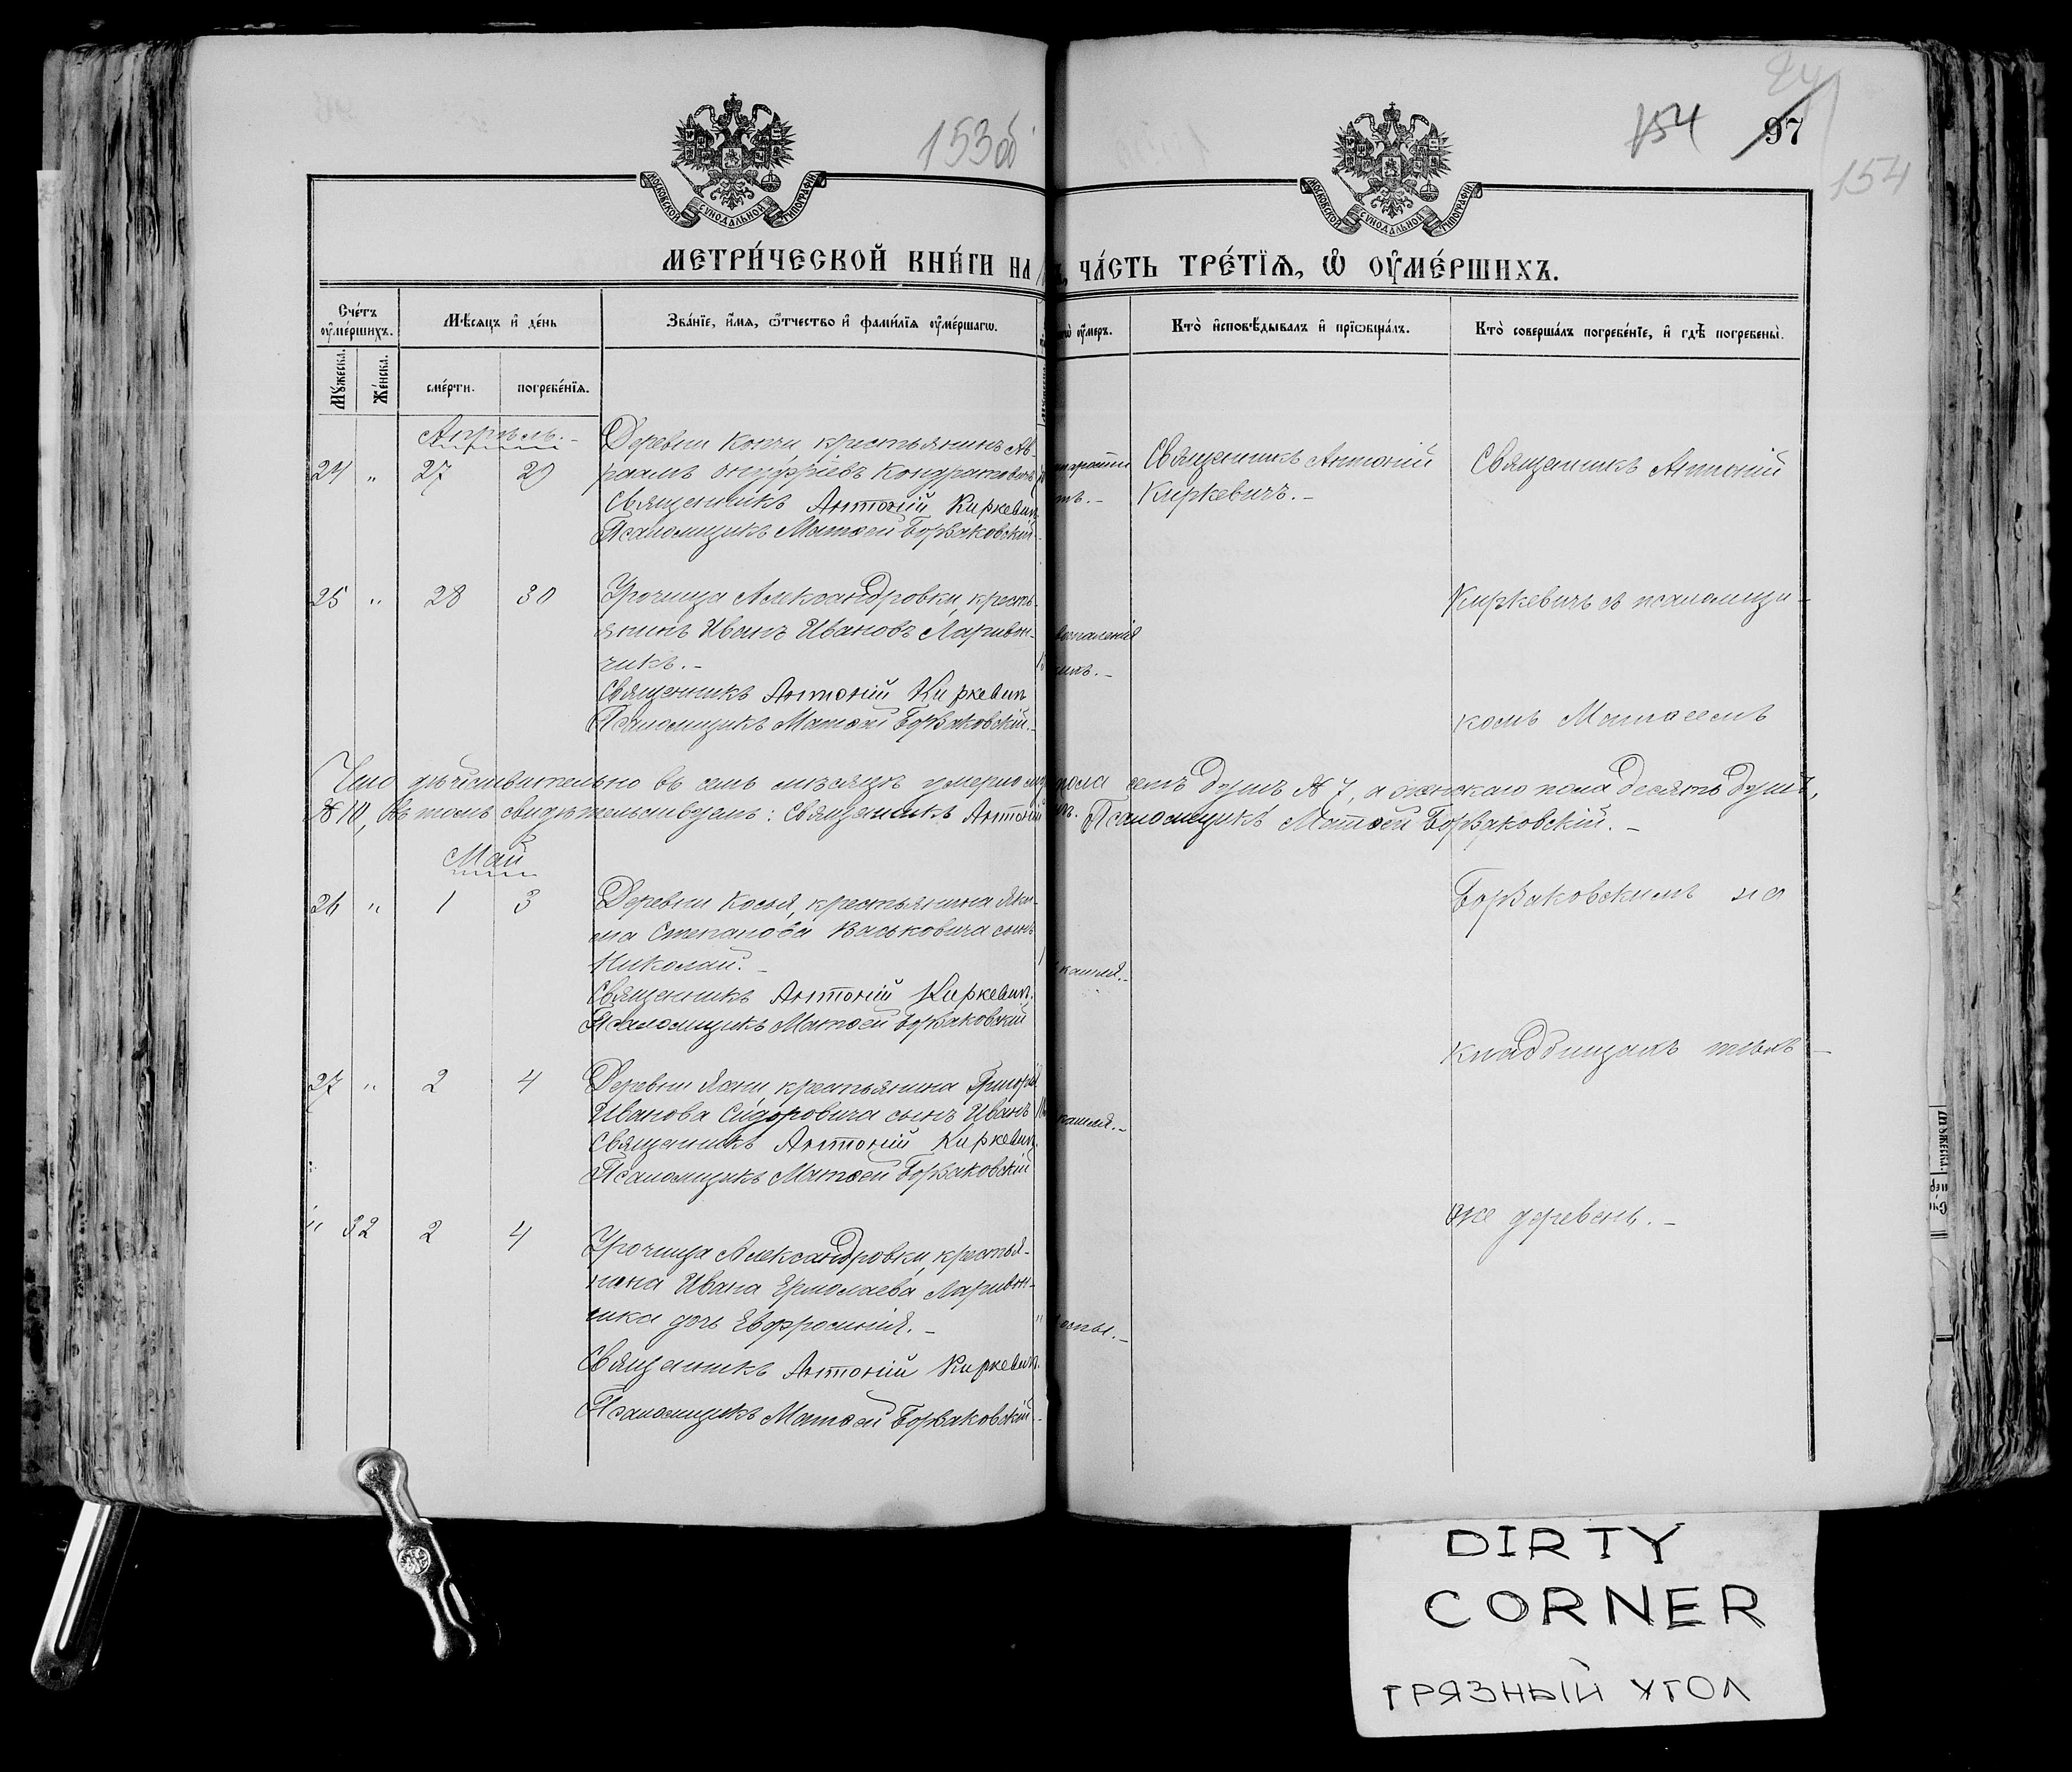 153об
154
97
154
МОСКОВСКОЙ СУНОДАЛЬНОЙ ТИПОГРАФІИ
МОСКОВСКОЙ СУНОДАЛЬНОЙ ТИПОГРАФІИ
МЕТРИ́ЧЕСКОЙ КНИ́ГИ НА ЧА́СТЬ ТРЕ́ТЇѦ, Ѽ ОУ҆МЕ́РШИХЪ.
Сче́тъ оу҆ме́ршихъ.
Мѣ́сяцъ и҆ де́нь
Зва́нїе, и҆́мя, ѻ҆́тчество и҆ фами́лїя оу҆ме́ршагѡ.
оу҆́меръ.
Кто̀ и҆сповѣ́дывалъ и҆ прїѡбща́лъ.
Кто̀ соверша́лъ погребе́нїе, и҆ гдѣ̀ погребены̀.
Мꙋ́жеска.
Же́нска.
сме́рти.
погребе́нїя.
Апрѣль.-
24 " 27 29
Деревни Копчи, крестьянинъ Ав-
раамъ Онуфріевъ Кондратовичъ
Священникъ Антоній Киркевич
Псаломщикъ Матѳей Борзаковскій.
Священникъ Антоній
Киркевичъ.-
Священникъ Антоній
25 " 28 30
Урочища Александровки, кресть-
янинъ Иванъ Ивановъ Ларивон-
чикъ.-
Священникъ Антоній Киркевич
Псаломщикъ Матѳей Борзаковскій.-
воспаленія
Киркевичъ съ псаломщи-
комъ Матѳеемъ
Что дѣйствительно въ семъ мѣсяцѣ умерло муж пола семь душъ № 7, а женскаго пола десять душъ,
№ 10, въ томъ свидѣтельствуемъ: Священникъ Антоній Псаломщикъ Матѳей Борзаковскій.-
Май
26 " 1 3
Деревни Косыя, крестьянина Яки-
ма Степанова Васьковича сынъ
Николай.-
Священникъ Антоній Киркевич.
Псаломщикъ Матѳей Борзаковскій
кашля.-
Борзаковскимъ на
27 " 2 4
Деревни Ясени, крестьянина Григорія
Иванова Сидоровича сынъ Иванъ
Священникъ Антоній Киркевич.
Псаломщикъ Матѳей Борзаковскій
кашля.-
кладбищахъ тѣхъ-
" 32 2 4
Урочища Александровки, крестья-
нина Ивана Ермолаева Ларивон-
чика дочь Евфросинія.-
Священникъ Антоній Киркевич.
Псаломщикъ Матѳей Борзаковскій.-
оспы.-
же деревень.-
DIRTY
CORNER
ГРЯЗНЫЙ УГОЛ